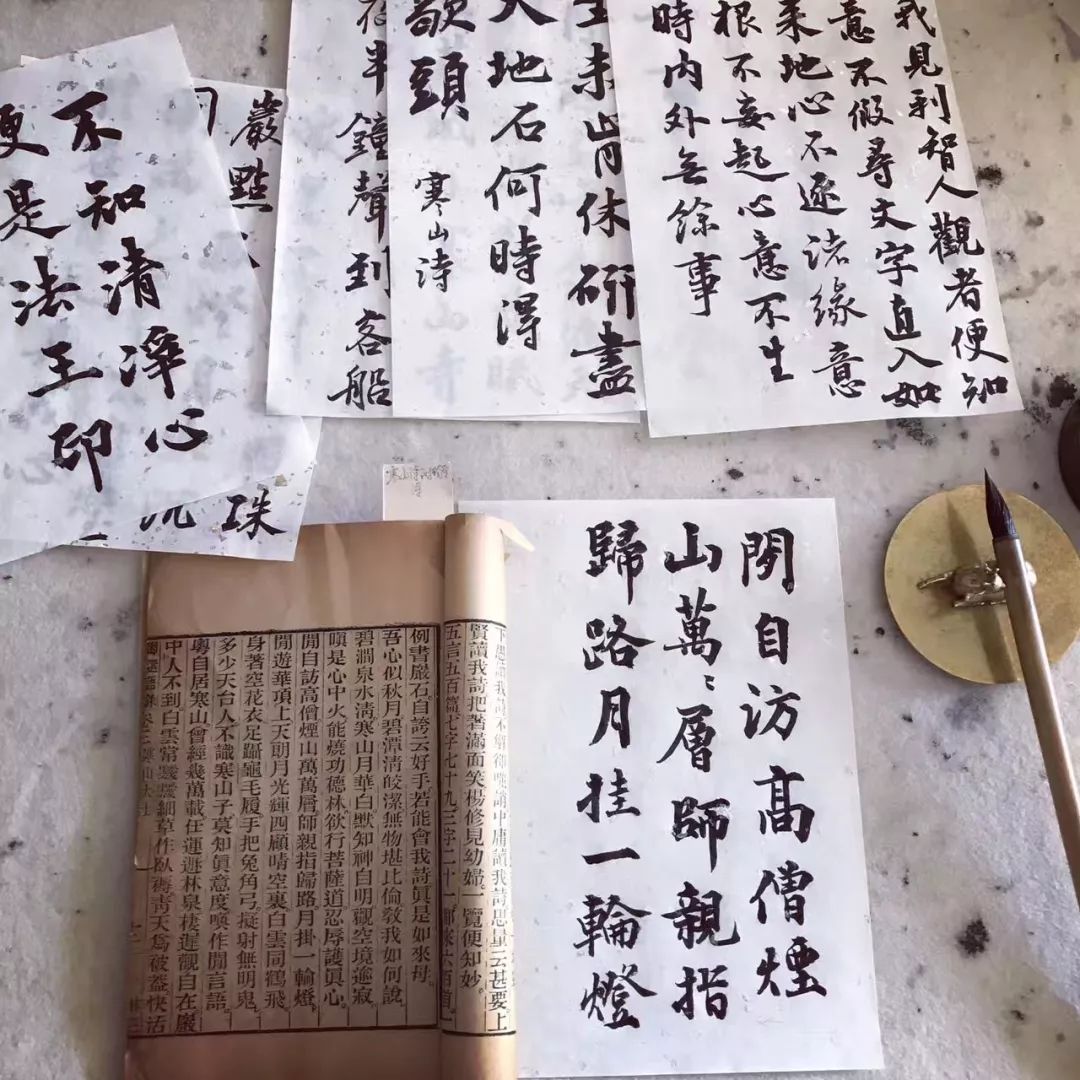 不知清淨心
便是法王印
巖點
珠
夜半鐘聲到客船
生未肯休研盡
大地石何時得
歇頭
寒山诗
我見利智人觀者便知
意不假尋文字直入如
来地心不逐诸缘意
根不妄起心意不生
時内外无餘事
閑自访高僧煙
山萬〻層師親指
歸路月挂一輪燈
下愚讀我詩不解却嗤誚中庸讀我詩思量云甚要上
賢讀我詩把著滿面笑楊修見幼婦一覽便知妙
五言五百篇七字七十九三字二十一都來六百首
例書巖石自誇云好手若能會我詩眞是如來母
吾心似秋月碧潭清皎潔無物堪比倫敎我如何說
碧澗泉水清寒山月華白默知神自明觀空境逾寂
嗔是心中火能燒功德林欲行菩薩道忍辱護眞心
閒自訪高僧煙山萬萬層師親指歸路月掛一輪燈
閒遊華頂上天朗月光輝四顧晴空裏白雲同鶴飛
身著空花衣足躡龜毛履手把兔角弓擬射無明鬼
多少天台人不識寒山子莫知眞意度喚作閒言語
粵自居寒山曾經幾萬載任運遯林泉棲遲觀自在巖
中人不到白雲常靉靆細草作臥褥靑天爲被蓋快活